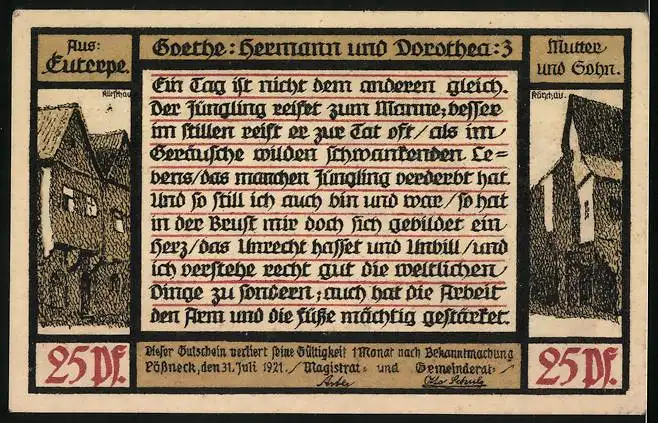 Aus:
Euterpe.
Goethe: Hermann und Dorothea: 3
Mutter
und Sohn.
Ein Tag ist nicht dem anderen gleich.
Der Jüngling reifet zum Manne; besser
im stillen reift er zur Tat oft/als im
Geräusche wilden schwankenden Le=
bens/das manchen Jüngling verderbt hat.
Und so still ich auch bin und war/so hat
in der Brust mir doch sich gebildet ein
Herz/das Unrecht hasset und Unbill/und
ich verstehe recht gut die weltlichen
Dinge zu sondern; auch hat die Arbeit
den Arm und die Füße mächtig gestärket.
25 Pf.
Dieser Gutschein verliert seine Gültigkeit 1 Monat nach Bekanntmachung
Pößneck, den 31. Juli 1921. / Magistrat= und Gemeinderat=
25 Pf.